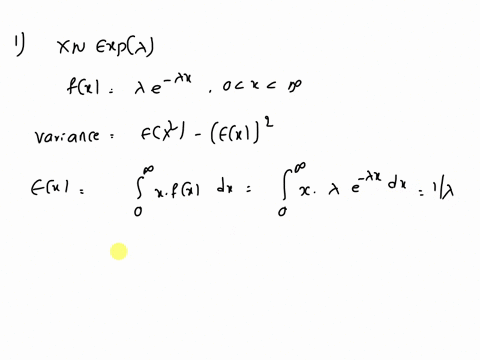 1) X ~ Exp(λ)
f(x) = λ e^{-λx} , 0 < x < ∞
variance = E(X²) - (E(x))²
E(x) = ∫₀^∞ x·f(x) dx = ∫₀^∞ x · λ e^{-λx} dx = 1/λ